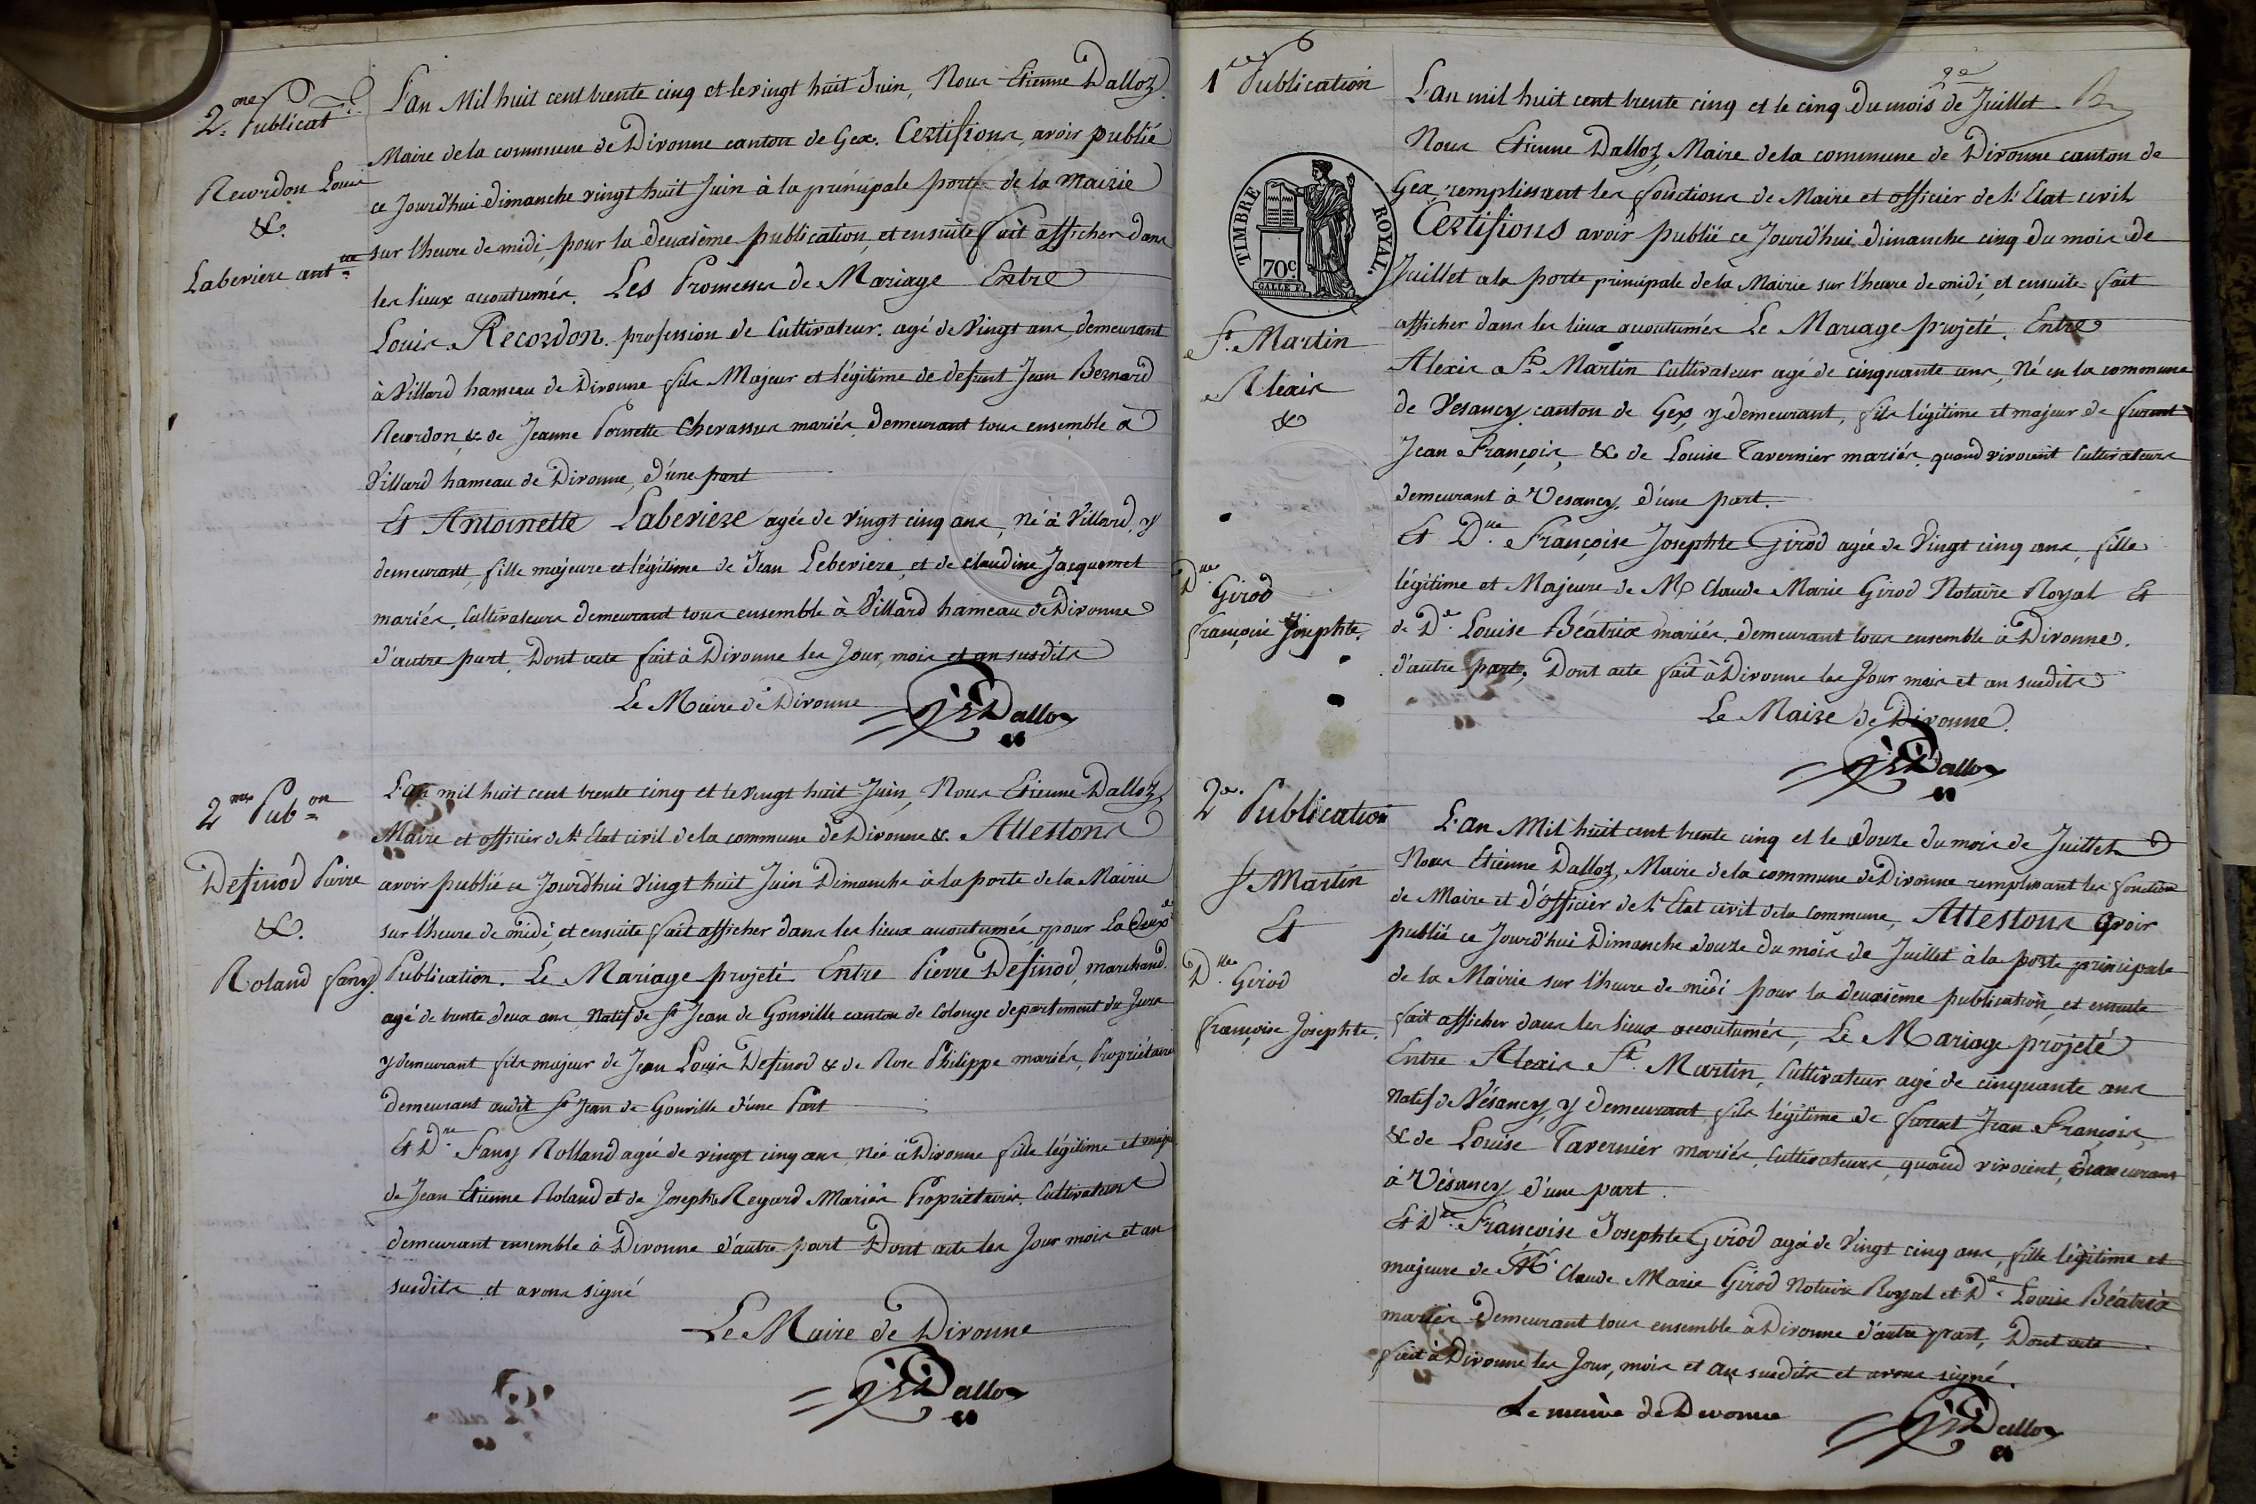 2.me Publicat.
Recordon Louis
&.
Laberiere ant.tte
L'an Mil huit cent trente cinq et le vingt huit Juin, Nous Etienne Dalloz
Maire de la commune de Divonne canton de Gex. Certifions, avoir publié
ce Jourd'hui dimanche vingt huit Juin à la principale porte de la Mairie
sur l'heure de midi, pour la deuxième publication, et ensuite fait afficher dans
les lieux accoutumés. Les Promesses de Mariage Entre
Louis Recordon profession de Cultivateur. agé de Vingt ans, demeurant
à Villard hameau de Divonne fils Majeur et légitime de defunt Jean Bernard
Recordon, & de Jeanne Pernette Chevassus mariés, demeurant tous ensemble à
Villard hameau de Divonne, d'une part
Et Antoinette Laberiere agée de vingt cinq ans, Né à Villard, y
demeurant, fille majeure et légitime de Jean Leberiere, et de Claudine Jacquemet
mariés, Cultivateurs demeurant tous ensemble à Villard hameau de Divonne
d'autre part. Dont acte fait à Divonne les Jour, mois et an susdits
Le Maire de Divonne
Dalloz
2.me Pub.on
Definod Pierre
&.
Roland fany.
L'an mil huit cent trente cinq et le vingt huit Juin, Nous Etienne Dalloz
Maire et officier de l'Etat civil de la commune de Divonne &. Attestons
avoir publié ce Jourd'hui Vingt huit Juin Dimanche à la porte de la Mairie
sur l'heure de midi, et ensuite fait afficher dans les lieux accoutumés, pour La deux.e
Publication. Le Mariage projeté Entre Pierre Definod, marchand.
agé de trente deux ans, Natif de St Jean de Gonville canton de Colonge departement du Jura
y demeurant fils majeur de Jean Louis Definod & de Rose Philippe mariés, Propriétaires
demeurant audit St Jean de Gonville d'une Part
Et D.lle Fany Rolland agée de vingt cinq ans, Née à Divonne fille légitime et maje
de Jean Etienne Roland et de Josephte Regard Mariés Propriétaires. Cultivateurs
demeurant ensemble à Divonne d'autre part Dont acte les Jour mois et an
susdits et avons signé
Le Maire de Divonne
Dalloz
1.ere Publication
TIMBRE ROYAL.
70c.
St. Martin
Alexis
&
D.lle Girod
françoise Josephte.
L'an mil huit cent trente cinq et le cinq du mois de Juillet
Nous Etienne Dalloz, Maire de la commune de Divonne canton de
Gex, remplissant les fonctions de Maire et officier de l'Etat civil
Certifions avoir publié ce Jourd'hui dimanche cinq du mois de
Juillet a la porte principale de la Mairie sur l'heure de midi, et ensuite fait
afficher dans les lieux accoutumés Le Mariage projeté. Entre
Alexis St. Martin Cultivateur agé de cinquante ans, Né en la commune
de Vesancy canton de Gex, y demeurant, fils légitime et majeur de furent
Jean François, & de Louise Tavernier mariés, quand vivoient Cultivateurs
demeurant à Vesancy, d'une part.
Et D.lle Françoise Josephte Girod agée de Vingt cinq ans, fille
légitime et Majeure de Mr Claude Marie Girod Notaire Royal Et
de D.e Louise Béatrix mariés, demeurant tous ensemble à Divonne.
d'autre part, Dont acte fait à Divonne les Jour mois et an susdits
Le Maire de Divonne
Dalloz
2.e Publication
St Martin
Et
D.lle Girod
françoise Josephte.
L'an Mil huit cent trente cinq et le douze du mois de Juillet
Nous Etienne Dalloz, Maire de la commune de Divonne remplissant les fonctions
de Maire et d'officier de l'Etat civil de la Commune, Attestons avoir
publié ce Jourd'hui Dimanche douze du mois de Juillet à la porte principale
de la Mairie sur l'heure de midi pour la deuxième publication, et ensuite
fait afficher dans les lieux accoutumés, Le Mariage projeté
Entre Alexis St. Martin, Cultivateur agé de cinquante ans
Natif de Vésancy, y demeurant, fils légitime de furent Jean François,
& de Louise Tavernier mariés, Cultivateurs, quand vivoient, demeurant
à Vésancy d'une part.
Et D.lle Françoise Josephte Girod agé de Vingt cinq ans, fille légitime et
majeure de Mr. Claude Marie Girod Notaire Royal et D.e Louise Béatrix
mariés demeurant tous ensemble à Divonne d'autre part, Dont acte
fait à Divonne les Jour, mois et an susdits et avons signé.
Le maire de Divonne
Dalloz